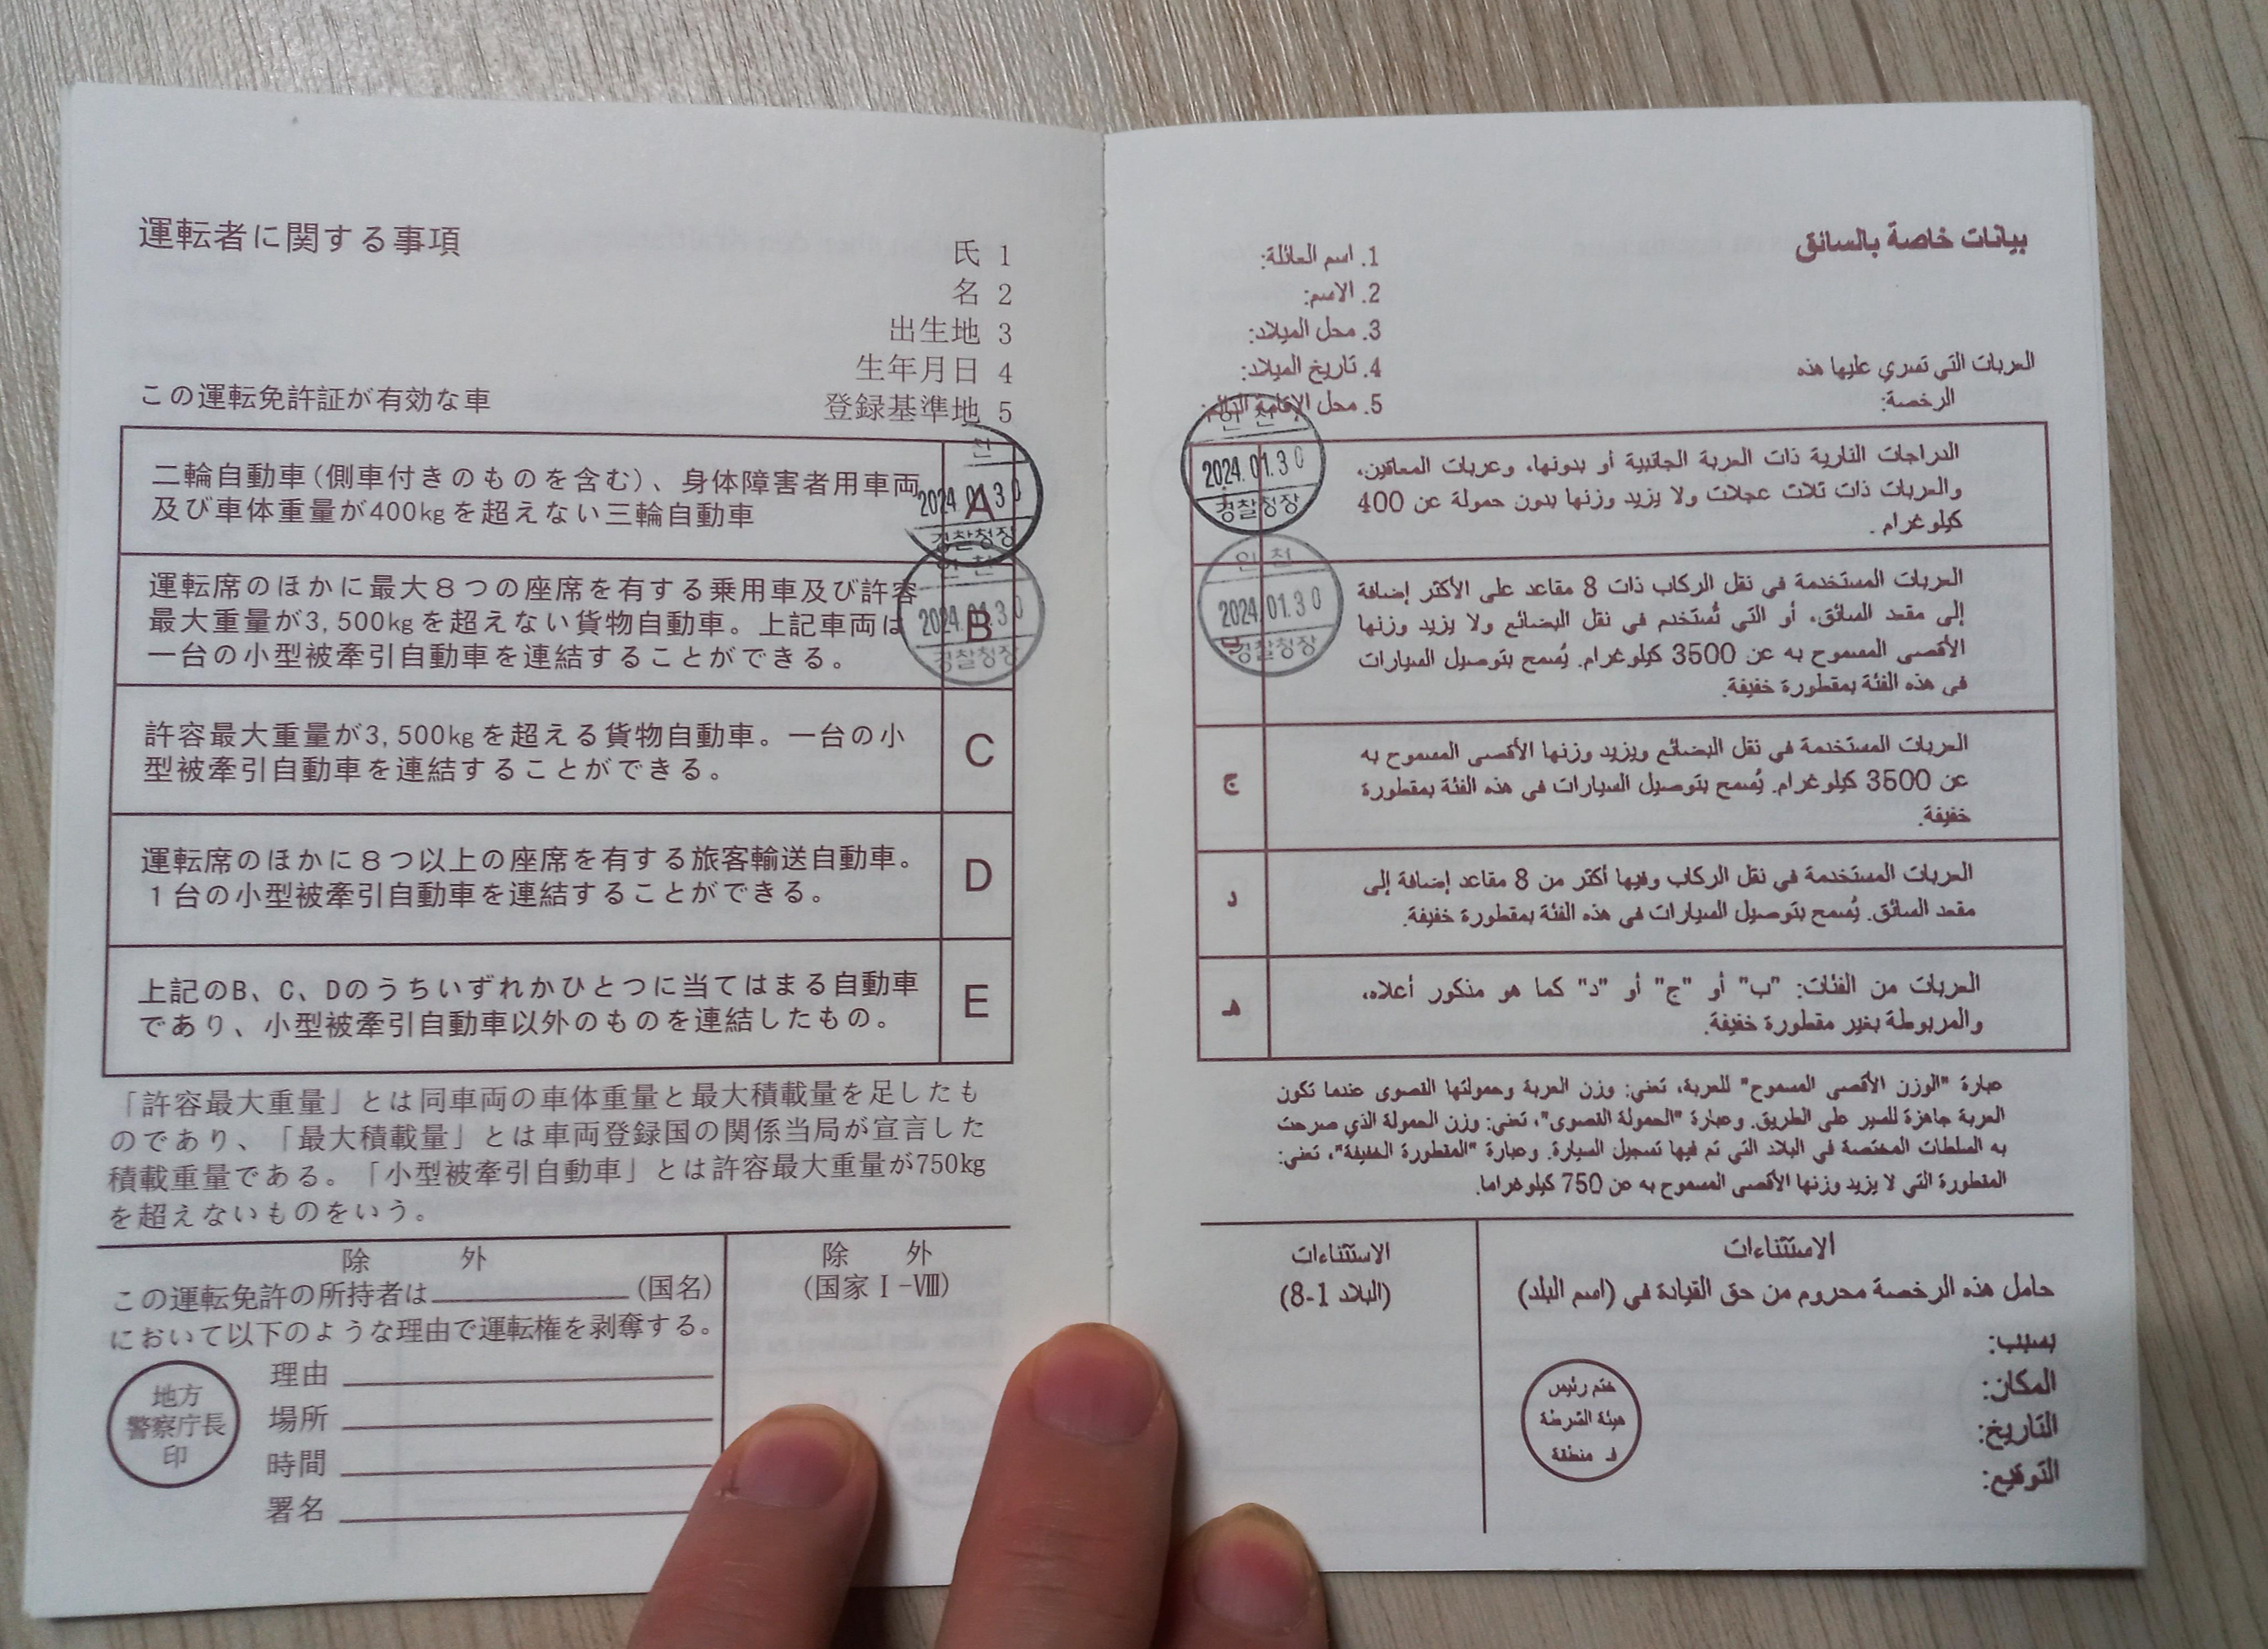 運転者に関する事項
氏 1
名 2
出生地 3
生年月日 4
この運転免許証が有効な車
登録基準地 5
二輪自動車(側車付きのものを含む)、身体障害者用車両
及び車体重量が400kgを超えない三輪自動車
A
천
2024.01.30
경찰청장
運転席のほかに最大8つの座席を有する乗用車及び許容
最大重量が3,500kgを超えない貨物自動車。上記車両は
一台の小型被牽引自動車を連結することができる。
B
인천
2024.01.30
경찰청장
許容最大重量が3,500kgを超える貨物自動車。一台の小
型被牽引自動車を連結することができる。
C
運転席のほかに8つ以上の座席を有する旅客輸送自動車。
1台の小型被牽引自動車を連結することができる。
D
上記のB、C、Dのうちいずれかひとつに当てはまる自動車
であり、小型被牽引自動車以外のものを連結したもの。
E
「許容最大重量」とは同車両の車体重量と最大積載量を足したも
のであり、「最大積載量」とは車両登録国の関係当局が宣言した
積載重量である。「小型被牽引自動車」とは許容最大重量が750kg
を超えないものをいう。
除 外
この運転免許の所持者は (国名)
において以下のような理由で運転権を剥奪する。
地方
警察庁長
印
理由
場所
時間
署名
除 外
(国家Ⅰ-Ⅷ)
بيانات خاصة بالسائق
1. اسم العائلة:
2. الاسم:
3. محل الميلاد:
4. تاريخ الميلاد:
5. محل الإقامة
العربات التي تسري عليها هذه
الرخصة:
인천
2024.01.30
경찰청장
الدراجات النارية ذات العربة الجانبية أو بدونها، وعربات المعاقين،
والعربات ذات ثلاث عجلات ولا يزيد وزنها بدون حمولة عن 400
كيلوغرام.
인천
2024.01.30
경찰청장
ب
العربات المستخدمة في نقل الركاب ذات 8 مقاعد على الأكثر إضافة
إلى مقعد السائق، أو التي تُستخدم في نقل البضائع ولا يزيد وزنها
الأقصى المسموح به عن 3500 كيلوغرام. يُسمح بتوصيل السيارات
في هذه الفئة بمقطورة خفيفة.
ج
العربات المستخدمة في نقل البضائع ويزيد وزنها الأقصى المسموح به
عن 3500 كيلوغرام. يُسمح بتوصيل السيارات في هذه الفئة بمقطورة
خفيفة.
د
العربات المستخدمة في نقل الركاب وفيها أكثر من 8 مقاعد إضافة إلى
مقعد السائق. يُسمح بتوصيل السيارات في هذه الفئة بمقطورة خفيفة.
هـ
العربات من الفئات: "ب" أو "ج" أو "د" كما هو مذكور أعلاه،
والمربوطة بغير مقطورة خفيفة.
عبارة "الوزن الأقصى المسموح" للعربة، تعني: وزن العربة وحمولتها القصوى عندما تكون
العربة جاهزة للسير على الطريق. وعبارة "الحمولة القصوى"، تعني: وزن الحمولة الذي صرحت
به السلطات المختصة في البلاد التي تم فيها تسجيل السيارة. وعبارة "المقطورة الخفيفة"، تعني:
المقطورة التي لا يزيد وزنها الأقصى المسموح به عن 750 كيلوغراما.
الاستثناءات
حامل هذه الرخصة محروم من حق القيادة في (اسم البلد)
بسبب:
المكان:
التاريخ:
التوقيع:
ختم رئيس
هيئة الشرطة
فـ منطقة
الاستثناءات
(البلاد 1-8)